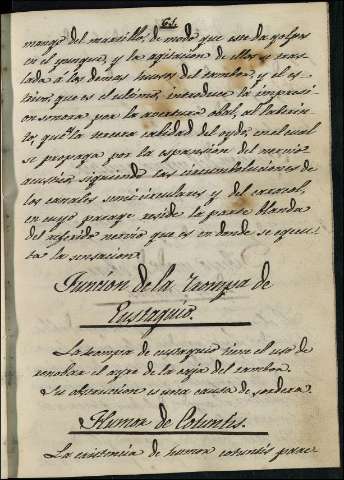 61.
mango del martillo, de modo que este da golpes
en el yunque, y la agitacion de ellos se tras-
lada á los demas huesos del tambor, y el es-
trivo, que es el ultimo, introduce la impresion
sonora por la abertura obal, al laberin-
to, que es la tercera calidad del oydo, en el cual
se propaga por la espansion del nervio
acustico siguiendo las circumboluciones de
los canales semicirculares y del caracol,
en cuyo parage reside la parte blanda
del referido nervio que es en donde se egecu-
ta la sensacion.
Funcion de la trompa de
Eustaquio.
La trompa de eustaquio tiene el uso de
renobar el ayre de la caja del tambor.
Su obstruccion es una causa de sordera.
Humor de Cotunnis.
La existencia de humor cotunnis parc-